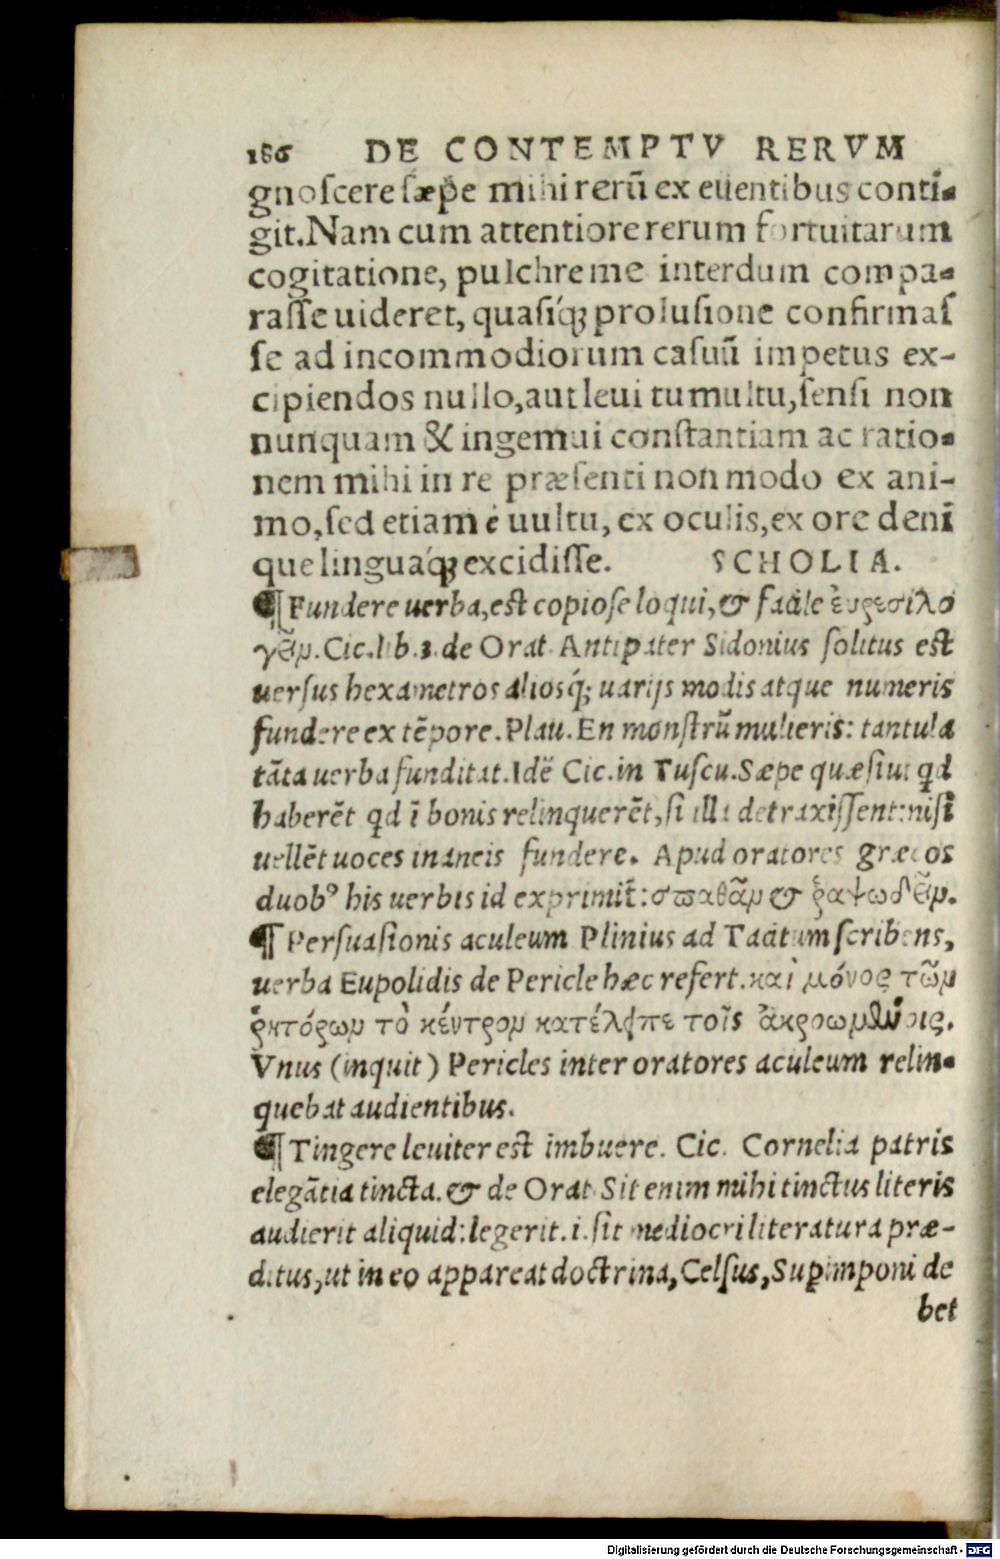 186 DE CONTEMPTV RERVM
gnoscere sæpe mihi rerũ ex euentibus conti-
git. Nam cum attentiore rerum fortuitarum
cogitatione, pulchre me interdum compa-
rasse uideret, quasiq́ꝫ prolusione confirmas
se ad incommodiorum casuũ impetus ex-
cipiendos nullo, aut leui tumultu, sensi non
nunquam & ingemui constantiam ac ratio-
nem mihi in re præsenti non modo ex ani-
mo, sed etiam è uultu, ex oculis, ex ore deni
que linguaq́ꝫ excidisse. SCHOLIA.
¶ Fundere uerba, est copiose loqui, & facile εὑρεσιλο
γεῖν. Cic. lib. 3. de Orat. Antipater Sidonius solitus est
uersus hexametros aliosq́ꝫ uarijs modis atque numeris
fundere ex tẽpore. Plau. En monstrũ mulieris: tantula
tãta uerba funditat. Idẽ Cic. in Tuscu. Sæpe quæsiui qd
haberẽt qd ĩ bonis relinquerẽt, si illa detraxissent: nisi
uellẽt uoces inaneis fundere. Apud oratores græcos
duobꝰ his uerbis id exprimit̃: σπαθᾶν & ῥαψωδεῖν.
¶ Persuasionis aculeum Plinius ad Tacitum scribens,
uerba Eupolidis de Pericle hæc refert. καὶ μόνος τῶν
ῥητόρων τὸ κέντρον κατέλειπε τοῖς ἀκροωμένοις.
Vnus (inquit) Pericles inter oratores aculeum relin-
quebat audientibus.
¶ Tingere leuiter est imbuere. Cic. Cornelia patris
elegãtia tincta. & de Orat. Sit enim mihi tinctus literis
audierit aliquid: legerit. i. sit mediocri literatura præ-
ditus, ut in eo appareat doctrina, Celsus, Supimponi de
bet
Digitalisierung gefördert durch die Deutsche Forschungsgemeinschaft - DFG